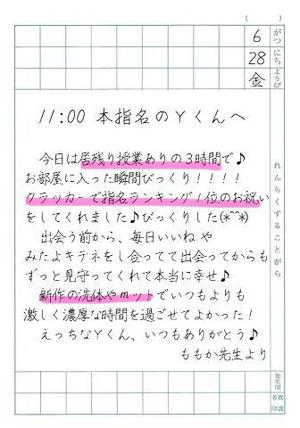 ( )
6
がつ
28
にち
金
ようび
れんらくすることがら
11:00 本指名のYくんへ
今日は居残り授業ありの3時間で♪
お部屋に入った瞬間びっくり!!!!
クラッカーで指名ランキング1位のお祝い
をしてくれました♪びっくりした(*^^*)
出会う前から、毎日いいねや
みたよキテネをし合ってて出会ってからも
ずっと見守ってくれて本当に幸せ♪
新作の洗体やmットでいつもよりも
激しく濃厚な時間を過ごせてよかった!
えっちなYくん、いつもありがとう♪
ももか先生より